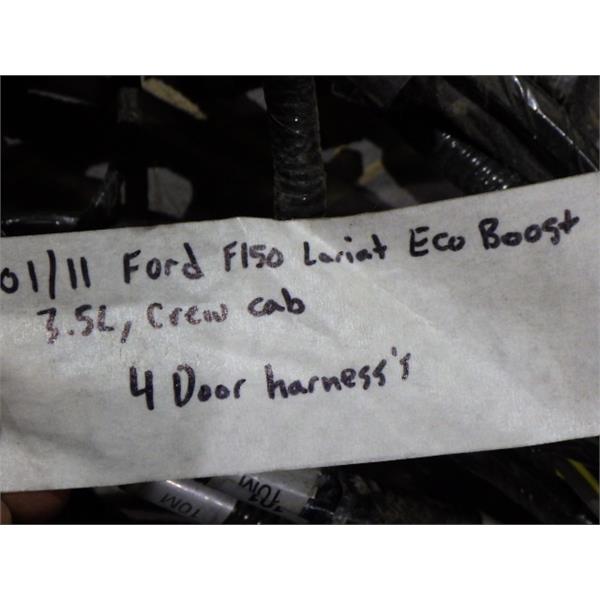 01/11 Ford F150 Lariat Eco Boost
3.5L, Crew cab
4 Door harness's
10M
10M